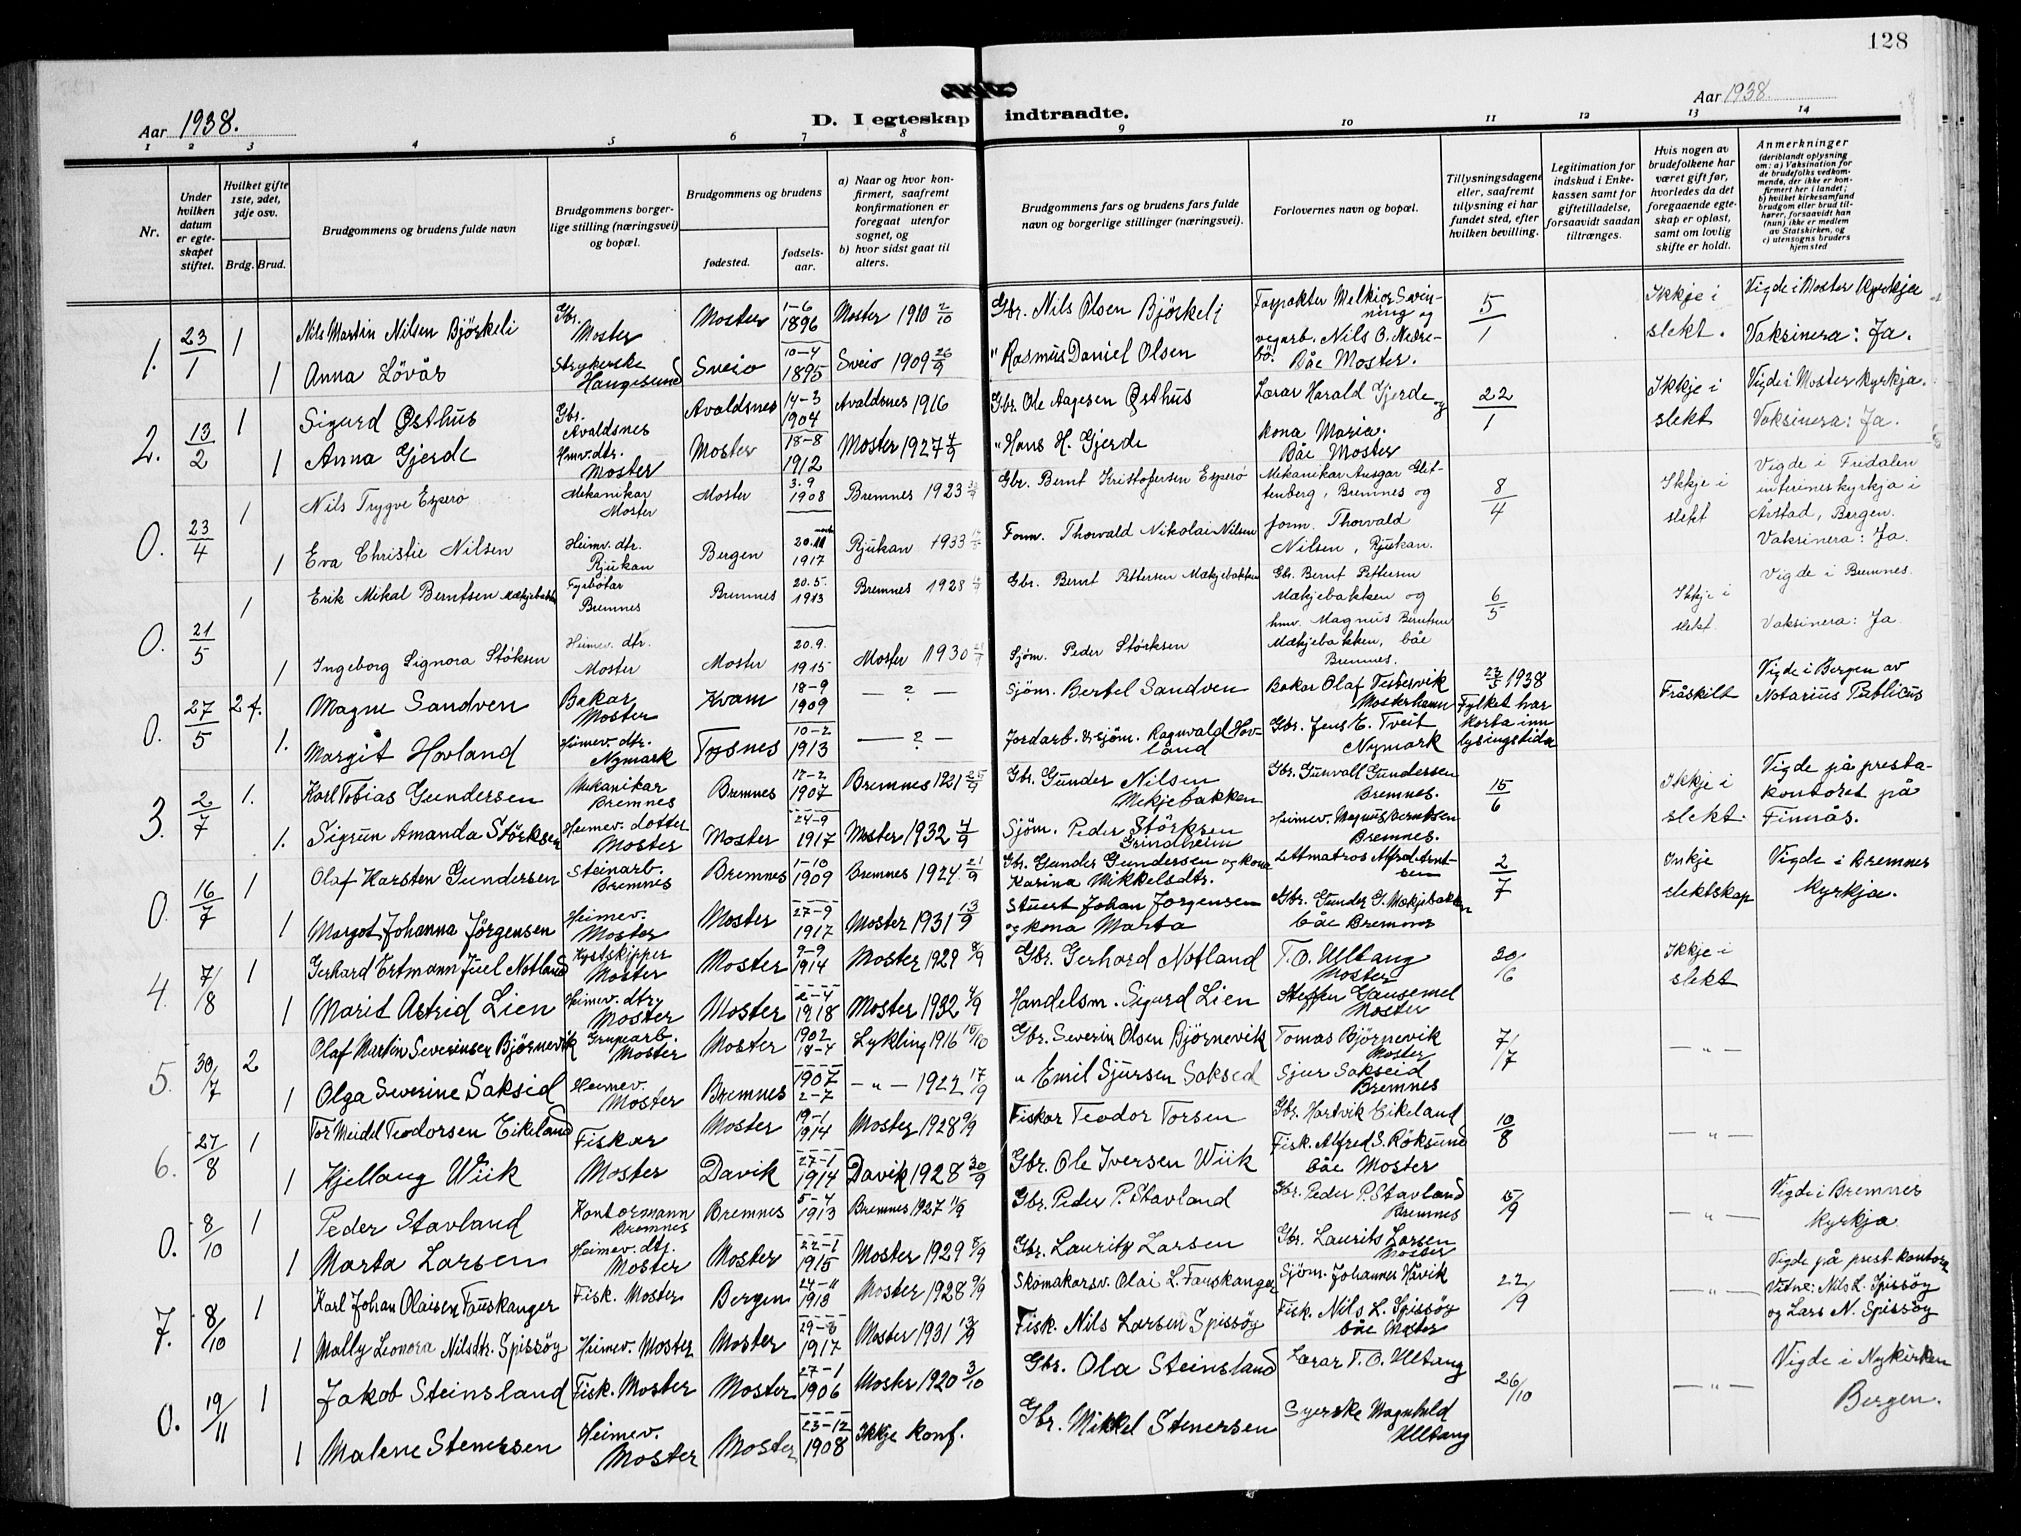 128
Aar 1938.
D. I egteskap indtraadte.
Aar 1938.
1 2 3 4 5 6 7 8 9 10 11 12 13 14
Nr.
Under hvilken datum er egteskapet stiftet.
Hvilket gifte 1ste, 2det, 3dje osv.
Brdg. Brud.
Brudgommens og brudens fulde navn
Brudgommens borgerlige stilling (næringsvei) og bopæl.
Brudgommens og brudens
fødested.
fødselsaar.
a) Naar og hvor konfirmert, saafremt konfirmationen er foregaat utenfor sognet, og
b) hvor sidst gaat til alters.
Brudgommens fars og brudens fars fulde navn og borgerlige stillinger (næringsvei).
Forlovernes navn og bopæl.
Tillysningsdagene eller, saafremt tillysning ei har fundet sted, efter hvilken bevilling.
Legitimation for indskud i Enkekassen samt for giftetilladelse, forsaavidt saadan tiltrænges.
Hvis nogen av brudefolkene har været gift før, hvorledes da det foregaaende egteskap er opløst, samt om lovlig skifte er holdt.
Anmerkninger
(deriblandt oplysning om: a) Vaksination for de brudefolks vedkommende, der ikke er konfirmert her i landet; b) hvilket kirkesamfund brudgom eller brud tilhører, forsaavidt han (hun) ikke er medlem av Statskirken, og c) utensogns bruders hjemsted
1. 23/1 1 Nils Martin Nilsen Björkeli Gbr. Moster Moster 1-6 1896 Moster 1910 2/10 Gbr. Nils Olsen Björkeli Forpakter Melkior Svinning og 5/1 Ikkje i slekt. Vigde i Moster kyrkja
1 Anna Lövås Strykerske Haugesund Sveio 10-4 1895 Sveio 1909 26/9 " Rasmus Daniel Olsen vegarb. Nils O. Nedrebö. Båe Moster. Vaksinera: Ja.
2. 13/2 1 Sigurd Østhus Gbr. Avaldsnes Avaldsnes 14-3 1904 Avaldsnes 1916 Gbr. Ole Aagesen Østhus Lærar Harald Gjerde og 22/1 Ikkje i slekt Vigde i Moster kyrkja.
1 Anna Gjerde Hmv. dtr. Moster Moster 18-8 1912 Moster 1927 4/9 " Hans H. Gjerde kona Maria. Båe Moster Vaksinera: Ja.
0. 23/4 1 Nils Trygve Esperø Mekanikar Moster Moster 3.9 1908 Bremnes 1923 Gbr. Bernt Kristofersen Esperø Mekanikar Ansgar Glittenberg, Bremnes og 8/4 Ikkje i slekt Vigde i Fridalen interimskyrkja i Årstad, Bergen.
1 Eva Christie Nilsen Heimv. dtr. Rjukan Bergen 20.11 1917 Rjukan 1933 Form. Thorvald Nikolai Nilsen form. Thorvald Nilsen, Rjukan. Vaksinera: Ja.
0. 21/5 1 Erik Mikal Berntsen Mækjebakken Fyrbøtar Bremnes Bremnes 20.5. 1913 Bremnes 1928 Gbr. Bernt Pettersen Mækjebakken Gbr. Bernt Pettersen Mækjebakken og 6/5 Ikkje i slekt. Vigde i Bremnes.
1 Ingeborg Signora Störksen Heimev. dtr. Moster Moster 20.9. 1915 Moster 1930 Sjøm. Peder Störksen hmv. Magnus Berntsen Mækjebakken, båe Bremnes. Vaksinera: Ja
0. 27/5 2 f. Magne Sandven Bakar Moster Kvam 18-9 1909 — ? — Sjöm. Bertel Sandven Bakar Olaf Testesvik Mosterhamn 23/5 1938 Fylket har korta inn lysingstida Fråskilt Vigde i Bergen av Notarius Publicus
1. Margit Hovland Heimev. dtr. Nymark Tysnes 10-2 1913 — ? — Jordarb. & sjöm. Ragnvald Hovland Gbr. Jens E. Tveit Nymark
3. 2/7 1. Karl Tobias Gundersen Mekanikar Bremnes Bremnes 17-2 1907 Bremnes 1921 25/9 Gbr. Gunder Nilsen Mekjebakken Gbr. Gunvall Gundersen Bremnes. 15/6 Ikkje i slekt. Vigde på prestakontoret på Finnås.
1. Sigrun Amanda Störksen Heimev. dotter Moster Moster 24-9 1917 Moster 1932 4/9 Sjöm. Peder Störksen Grindheim Heimev. Magnus Berntsen Bremnes.
0. 16/7 1 Olaf Karsten Gundersen Steinarb. Bremnes Bremnes 1-10 1909 Bremnes 1924 21/9 Gbr. Gunder Gundersen og kona Karina Mikkelsdtr. Lettmatros Alfred Arntsen 2/7 Inkje slektskap Vigde i Bremnes kyrkja.
1 Margot Johanna Jörgensen Heimev. Moster Moster 27-9 1917 Moster 1931 13/9 Stuert Johan Jörgensen og kona Marta Gbr. Gunder G. Mækjebakken båe Bremnes
4. 7/8 1 Gerhard Ertmann Juel Notland Kystskipper Moster Moster 9-9 1914 Moster 1929 8/9 Gbr. Gerhard Notland T. O. Ulltang Moster 20/6 Ikkje i slekt
1 Marit Astrid Lien Heimev. dtr. Moster Moster 2-4 1918 Moster 1932 4/9 Handelsm. Sigurd Lien Steffen Gausemel Moster
5. 30/7 2 Olaf Martin Severinsen Björnevik Gruparb. Moster Moster 1902 14-4 Lykling 1916 10/10 Gbr. Severin Olsen Björnevik Tomas Björnevik Moster 7/7 — " —
1 Olga Severine Sakseid Heimev. Moster Bremnes 1907 2-7 — " — 1922 17/9 " Emil Sjursen Sakseid Sjur Sakseid Bremnes
6. 27/8 1 Tor Meidel Teodorsen Eikeland Fiskar Moster 19-1 1914 Moster 1928 9/9 Fiskar Teodor Torsen Gbr. Hartvik Eikeland 10/8 — " —
1 Kjellaug Wiik Moster Davik 27-1 1914 Davik 1928 30/9 Gbr. Ole Iversen Wiik Fisk. Alfred S. Röksund båe Moster
0. 8/10 1 Peder Stavland Kontormann Bremnes Bremnes 5-4 1913 Bremnes 1927 11/9 Gbr. Peder P. Stavland Gbr. Peder P. Stavland Bremnes 15/9 — " — Vigde i Bremnes kyrkja
1 Marta Larsen Heimev. dtr. Moster Moster 22-1 1915 Moster 1929 8/9 Gbr. Lauritz Larsen Gbr. Laurits Larsen Moster
7. 8/10 1 Karl Johan Olaisen Fauskanger Fisk. Moster Bergen 24-11 1913 Moster 1928 9/9 Skomakarsv. Olai L. Fauskanger Sjöm. Johannes Håvik 22/9 — " — Vigde på prest-kontora
1 Molly Leonora Nilsdtr. Spissöy Heimev. Moster Moster 29-8 1917 Moster 1931 13/9 Fisk. Nils Larsen Spissöy Fisk. Nils L. Spissöy båe Moster Vitne: Nils L. Spissöy og Lars N. Spissöy
0. 19/11 1 Jakob Steinsland Fisk. Moster Moster 27-1 1906 Moster 1920 3/10 Gbr. Ola Steinsland Lærar T. O. Ulltang 26/10 — " — Vigde i Nykirken Bergen.
1 Malene Stenersen Heimev. Moster Moster 23-12 1908 Ikkje konf. Gbr. Mikkel Stenersen Syerske Magnhild Ulltang